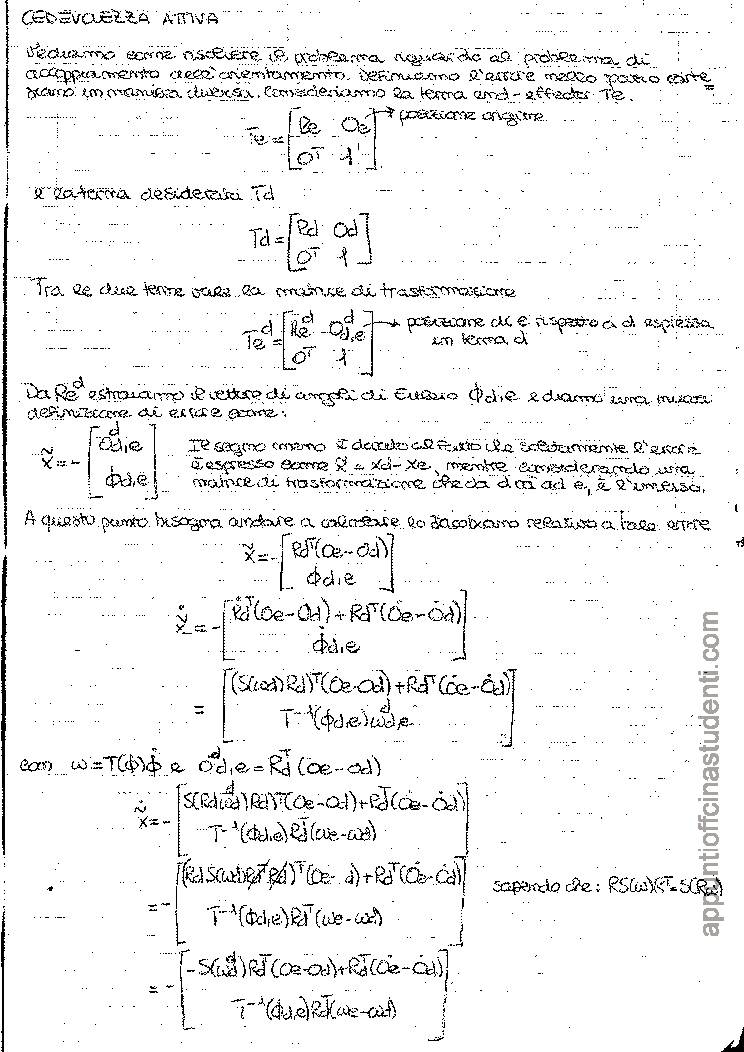 CEDEVOLEZZA ATTIVA
Vediamo come risolvere il problema riguardo al problema di
accoppiamento dell'orientamento. Definiamo l'errore nello spazio carte
siano in maniera diversa. Consideriamo la terna end-effector Te.
Te = [Re Oe → posizione origine
0ᵀ 1]
e la terna desiderata Td
Td = [Rd Od
0ᵀ 1]
Tra le due terne vale la matrice di trasformazione
Teᵈ = [Reᵈ Oᵈd,e → posizione di e rispetto a d espressa
0ᵀ 1] in terna d
Da Reᵈ estraiamo il vettore di angoli di Eulero ϕd,e e diamo una nuova
definizione di errore come:
x̃ = - [Oᵈd,e Il segno meno è dovuto al fatto che solitamente l'errore
è espresso come x̃ = xd - xe, mentre considerando una
ϕd,e] matrice di trasformazione che da d va ad e, è l'inverso.
A questo punto bisogna andare a calcolare lo Jacobiano relativo a tale errore
x̃ = - [Rdᵀ(Oe - Od)
ϕd,e]
x̃̇ = - [Ṙdᵀ(Oe - Od) + Rdᵀ(Ȯe - Ȯd)
ϕ̇d,e]
= - [(S(ωd)Rd)ᵀ(Oe - Od) + Rdᵀ(Ȯe - Ȯd)
T⁻¹(ϕd,e)ωᵈd,e]
con ω = T(ϕ)ϕ̇ e Oᵈd,e = Rdᵀ(Oe - Od)
x̃̇ = - [(S(Rdωdᵈ)Rd)ᵀ(Oe - Od) + Rdᵀ(Ȯe - Ȯd)
T⁻¹(ϕd,e)Rdᵀ(ωe - ωd)]
= - [(RdS(ωdᵈ)RdᵀRd)ᵀ(Oe - d) + Rdᵀ(Ȯe - Ȯd) sapendo che: RS(ω)Rᵀ = S(Rω)
T⁻¹(ϕd,e)Rdᵀ(ωe - ωd)]
= - [-S(ωdᵈ)Rdᵀ(Oe - Od) + Rdᵀ(Ȯe - Ȯd)
T⁻¹(ϕd,e)Rdᵀ(ωe - ωd)]
appuntiofficinastudenti.com